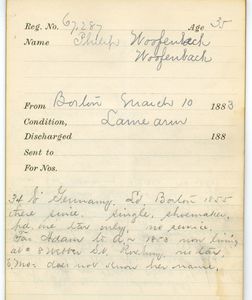 Reg. No. 67,287 Age 35
Name Philip Woofenbach
Woofenback
From Boston March 10 1883
Condition, Lame arm
Discharged 188
Sent to
For Nos.
34 S Germany. Ed. Boston 1855
there since. Single, shoemaker,
pd. one tax only, no service.
Fa. Adam to A. 1853 now living
at 8 St., Roxbury, no tax.
Mo. does not know her name,